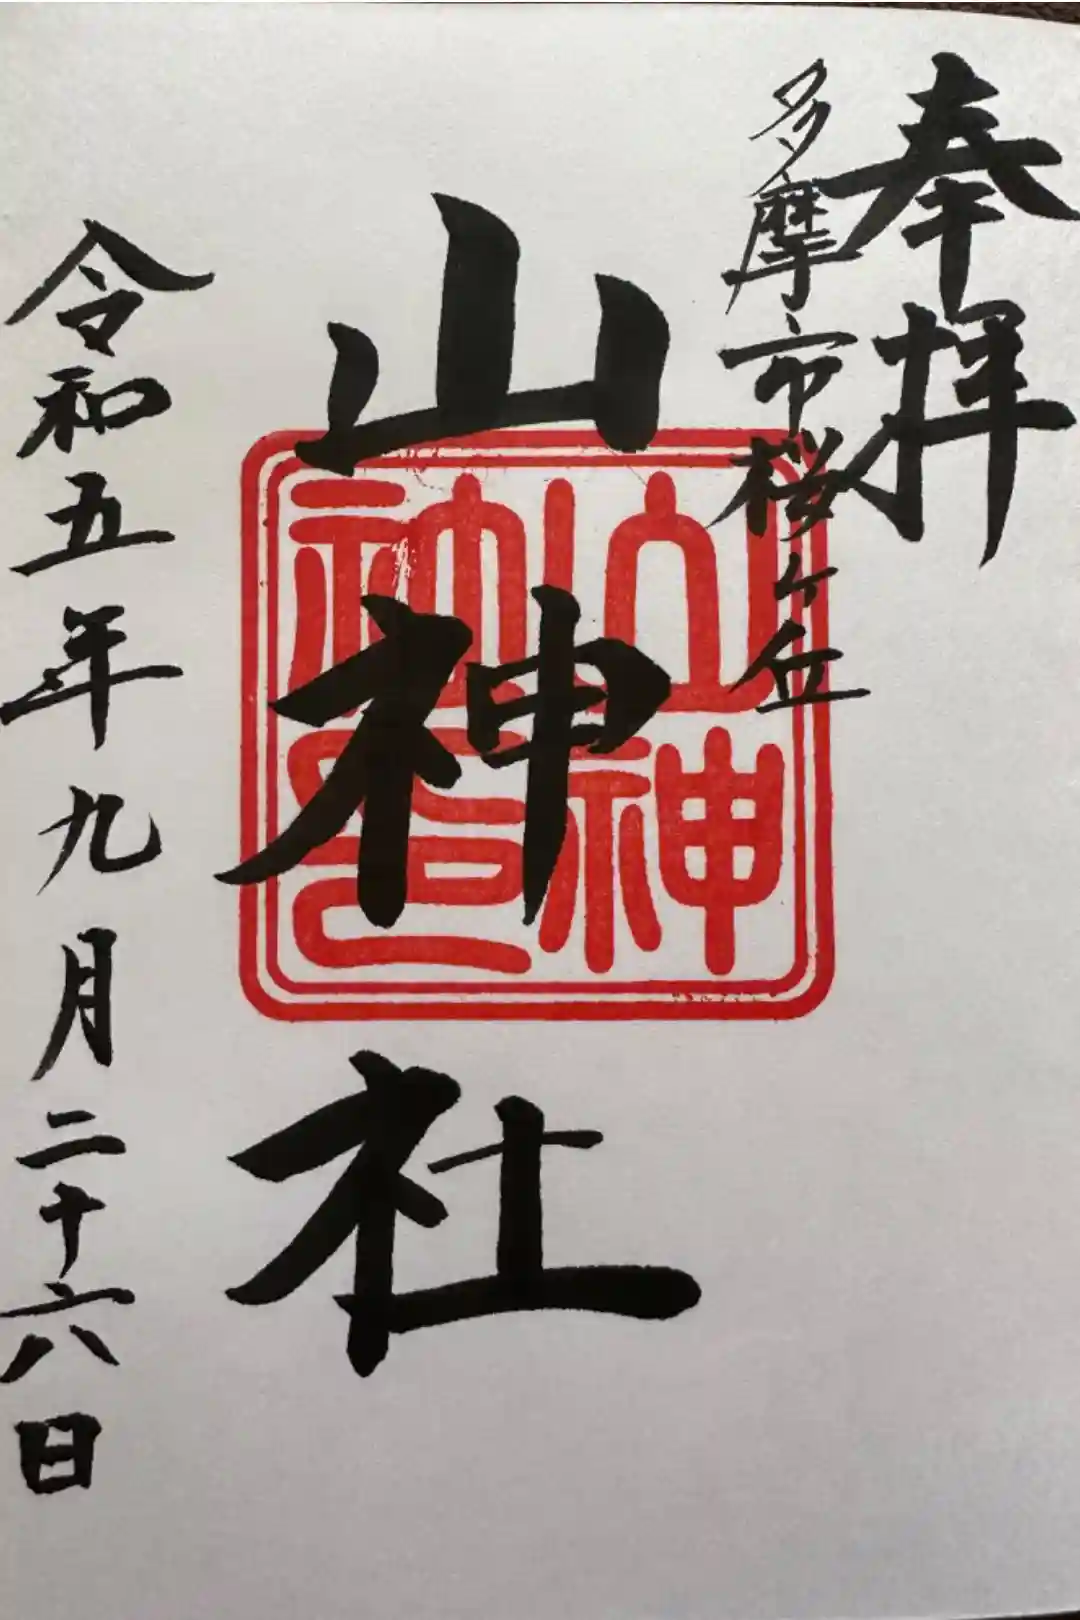 奉拝
多摩市桜ヶ丘
山神社
山神
社印
令和五年九月二十六日